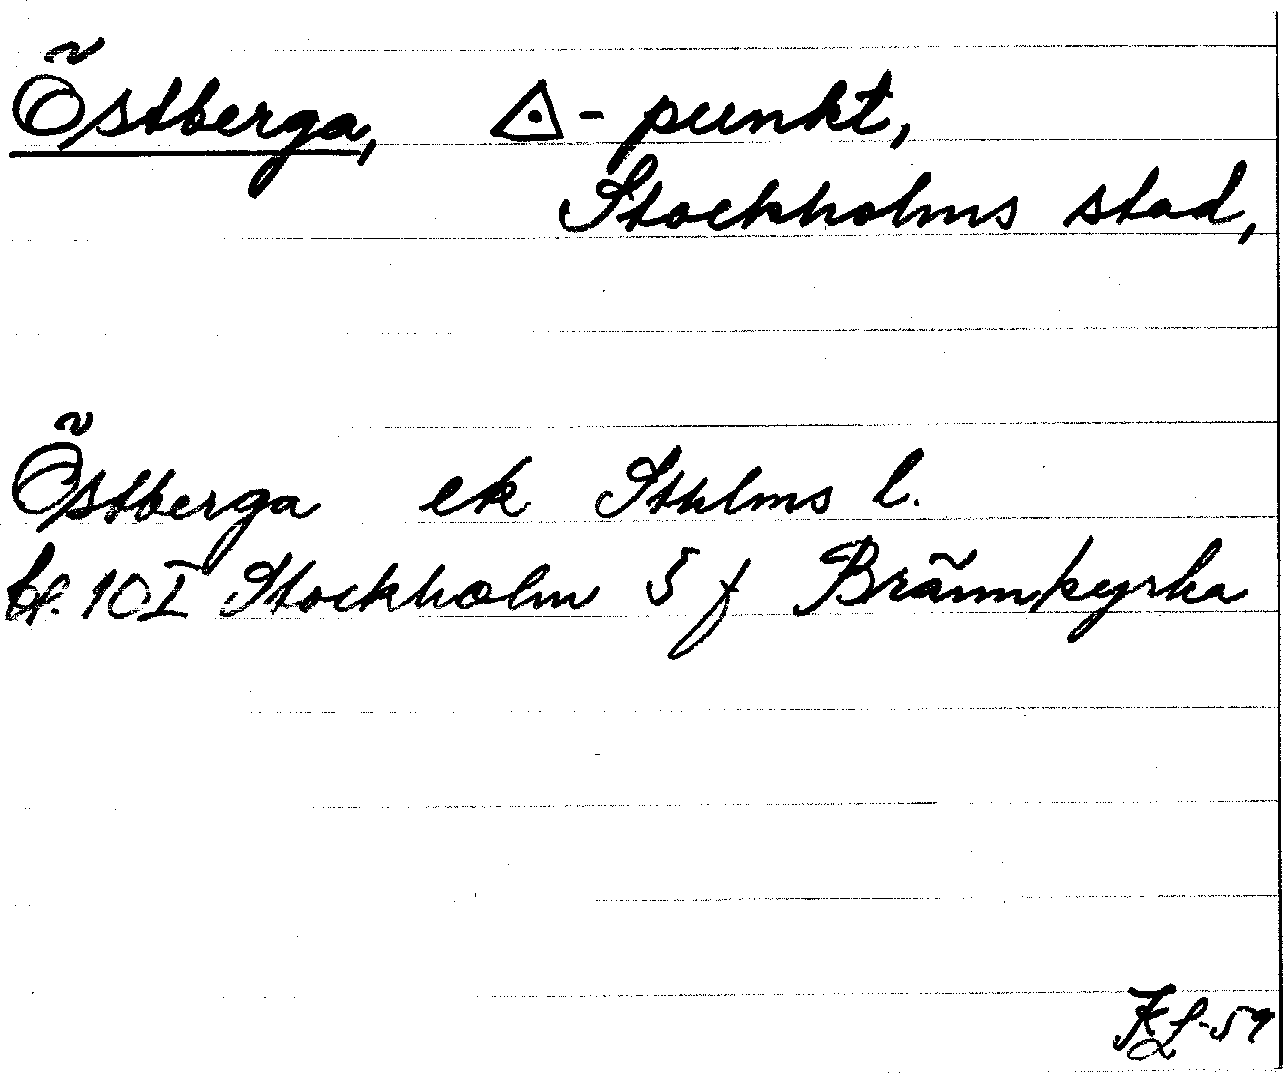 Östberga, △-punkt,
Stockholms stad,
Östberga ek Sthlms l.
bl. 10 I Stockholm 5 f Brännkyrka
KL-59